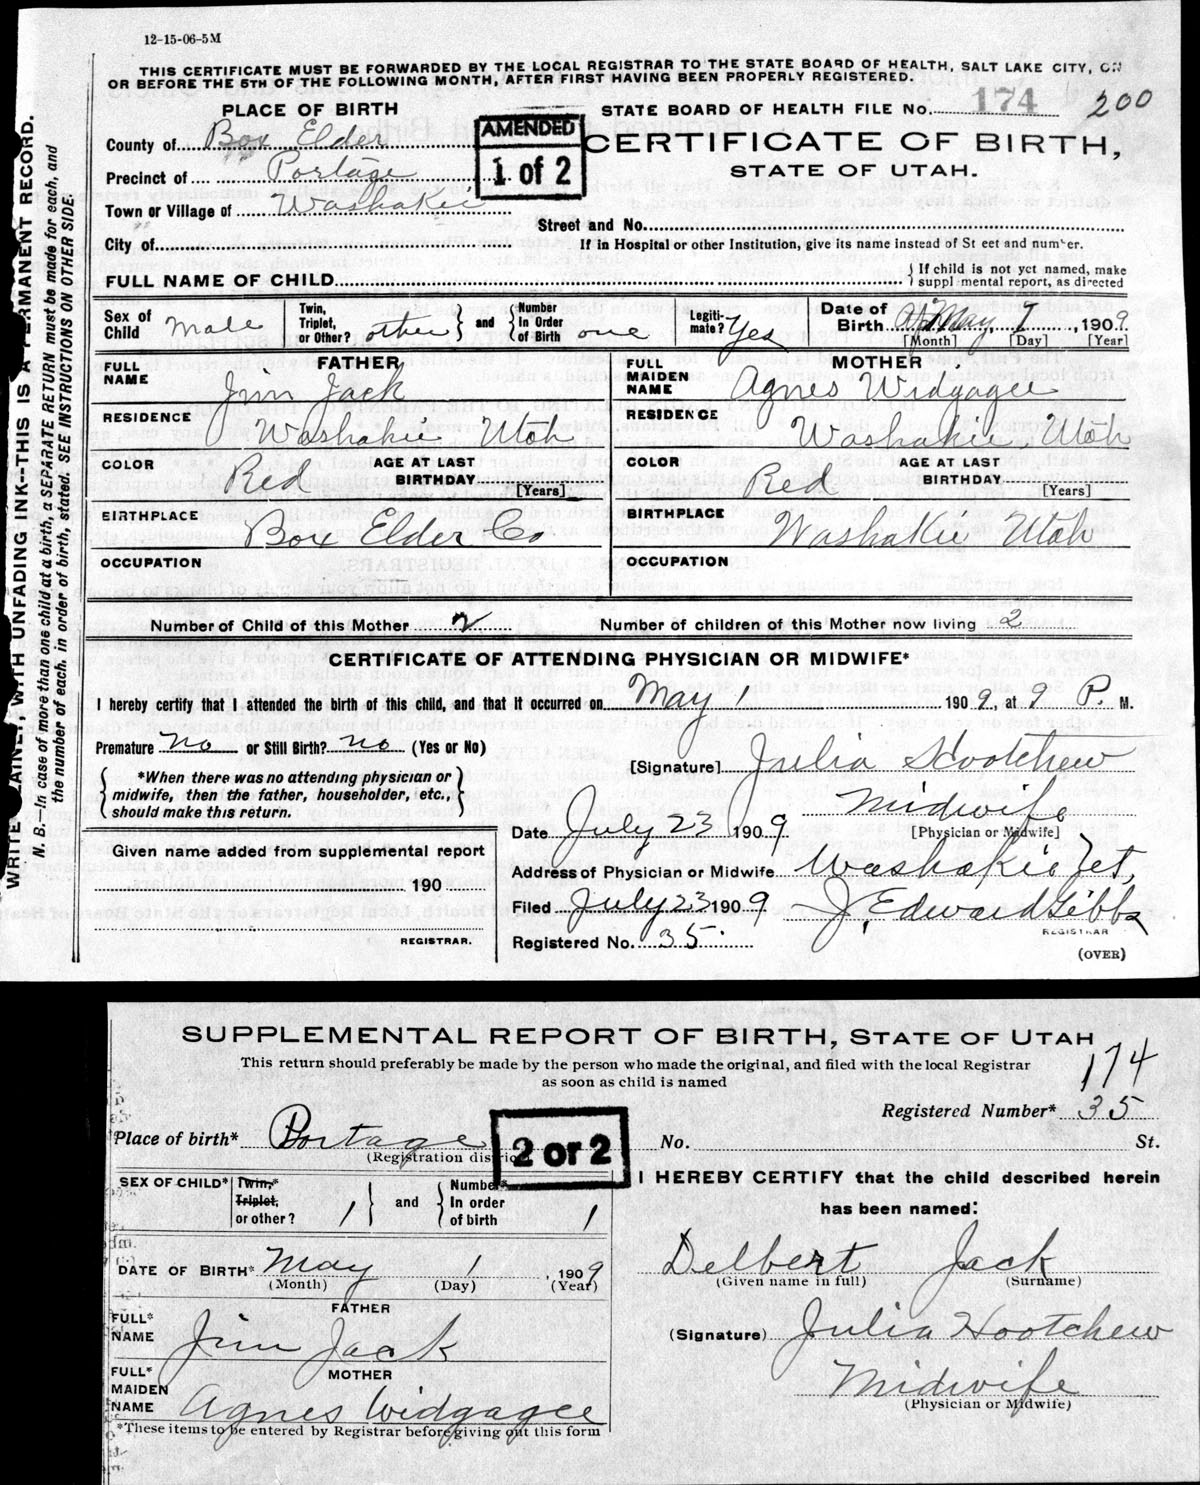 12-15-06-5M
THIS CERTIFICATE MUST BE FORWARDED BY THE LOCAL REGISTRAR TO THE STATE BOARD OF HEALTH, SALT LAKE CITY, ON
OR BEFORE THE 5TH OF THE FOLLOWING MONTH, AFTER FIRST HAVING BEEN PROPERLY REGISTERED.
PLACE OF BIRTH
STATE BOARD OF HEALTH FILE No. 174 200
County of Box Elder
AMENDED
1 of 2
CERTIFICATE OF BIRTH,
STATE OF UTAH.
Precinct of Portage
Town or Village of Washakie
Street and No.
City of
If in Hospital or other Institution, give its name instead of St eet and number.
FULL NAME OF CHILD
If child is not yet named, make
suppl mental report, as directed
Sex of Child Male
Twin, Triplet, or Other? other and Number In Order of Birth one
Legiti-mate? Yes
Date of Birth May 1, 1909
[Month] [Day] [Year]
FATHER
FULL NAME Jim Jack
RESIDENCE Washakie Utah
COLOR Red AGE AT LAST BIRTHDAY [Years]
BIRTHPLACE Box Elder Co
OCCUPATION
MOTHER
FULL MAIDEN NAME Agnes Widgagee
RESIDENCE Washakie, Utah
COLOR Red AGE AT LAST BIRTHDAY [Years]
BIRTHPLACE Washakie Utah
OCCUPATION
Number of Child of this Mother 2 Number of children of this Mother now living 2
CERTIFICATE OF ATTENDING PHYSICIAN OR MIDWIFE*
I hereby certify that I attended the birth of this child, and that it occurred on May 1 1909, at 9 P. M.
Premature no or Still Birth? no (Yes or No)
*When there was no attending physician or
midwife, then the father, householder, etc.,
should make this return.
[Signature] Julia Hootchew
Midwife
[Physician or Midwife]
Date July 23 1909
Given name added from supplemental report
190
REGISTRAR.
Address of Physician or Midwife Washakie
Filed July 23 1909 J. Edward Gibbs
REGISTRAR
Registered No. 35
(OVER)
WRITE PLAINLY, WITH UNFADING INK--THIS IS A PERMANENT RECORD.
N. B.—In case of more than one child at a birth, a SEPARATE RETURN must be made for each, and
the number of each. in order of birth, stated. SEE INSTRUCTIONS ON OTHER SIDE.
SUPPLEMENTAL REPORT OF BIRTH, STATE OF UTAH
This return should preferably be made by the person who made the original, and filed with the local Registrar
as soon as child is named
174
Registered Number* 35
Place of birth* Portage No. St.
(Registration distric
2 or 2
SEX OF CHILD* Twin,* Triplet, or other? 1 and Number* In order of birth 1
I HEREBY CERTIFY that the child described herein
has been named:
DATE OF BIRTH* May 1, 1909
(Month) (Day) (Year)
Delbert Jack
(Given name in full) (Surname)
FATHER
FULL* NAME Jim Jack
(Signature) Julia Hootchew
Midwife
(Physician or Midwife)
MOTHER
FULL* MAIDEN NAME Agnes Widgagee
*These items to be entered by Registrar before giving out this form